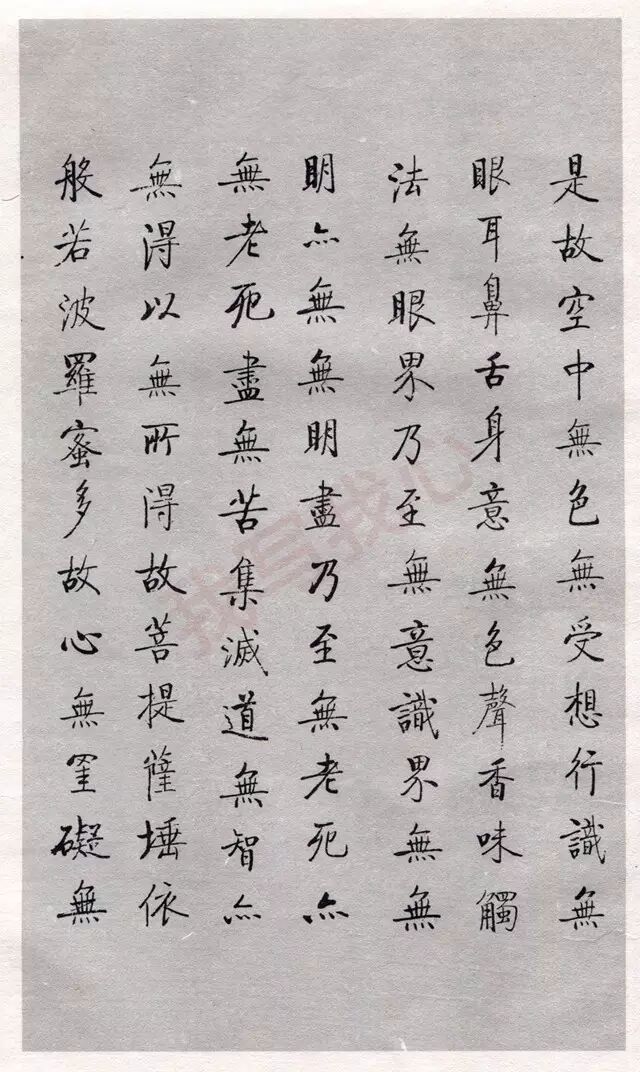 是故空中無色無受想行識無
眼耳鼻舌身意無色聲香味觸
法無眼界乃至無意識界無無
明亦無無明盡乃至無老死亦
無老死盡無苦集滅道無智亦
無得以無所得故菩提薩埵依
般若波羅蜜多故心無罣礙無
我写我心